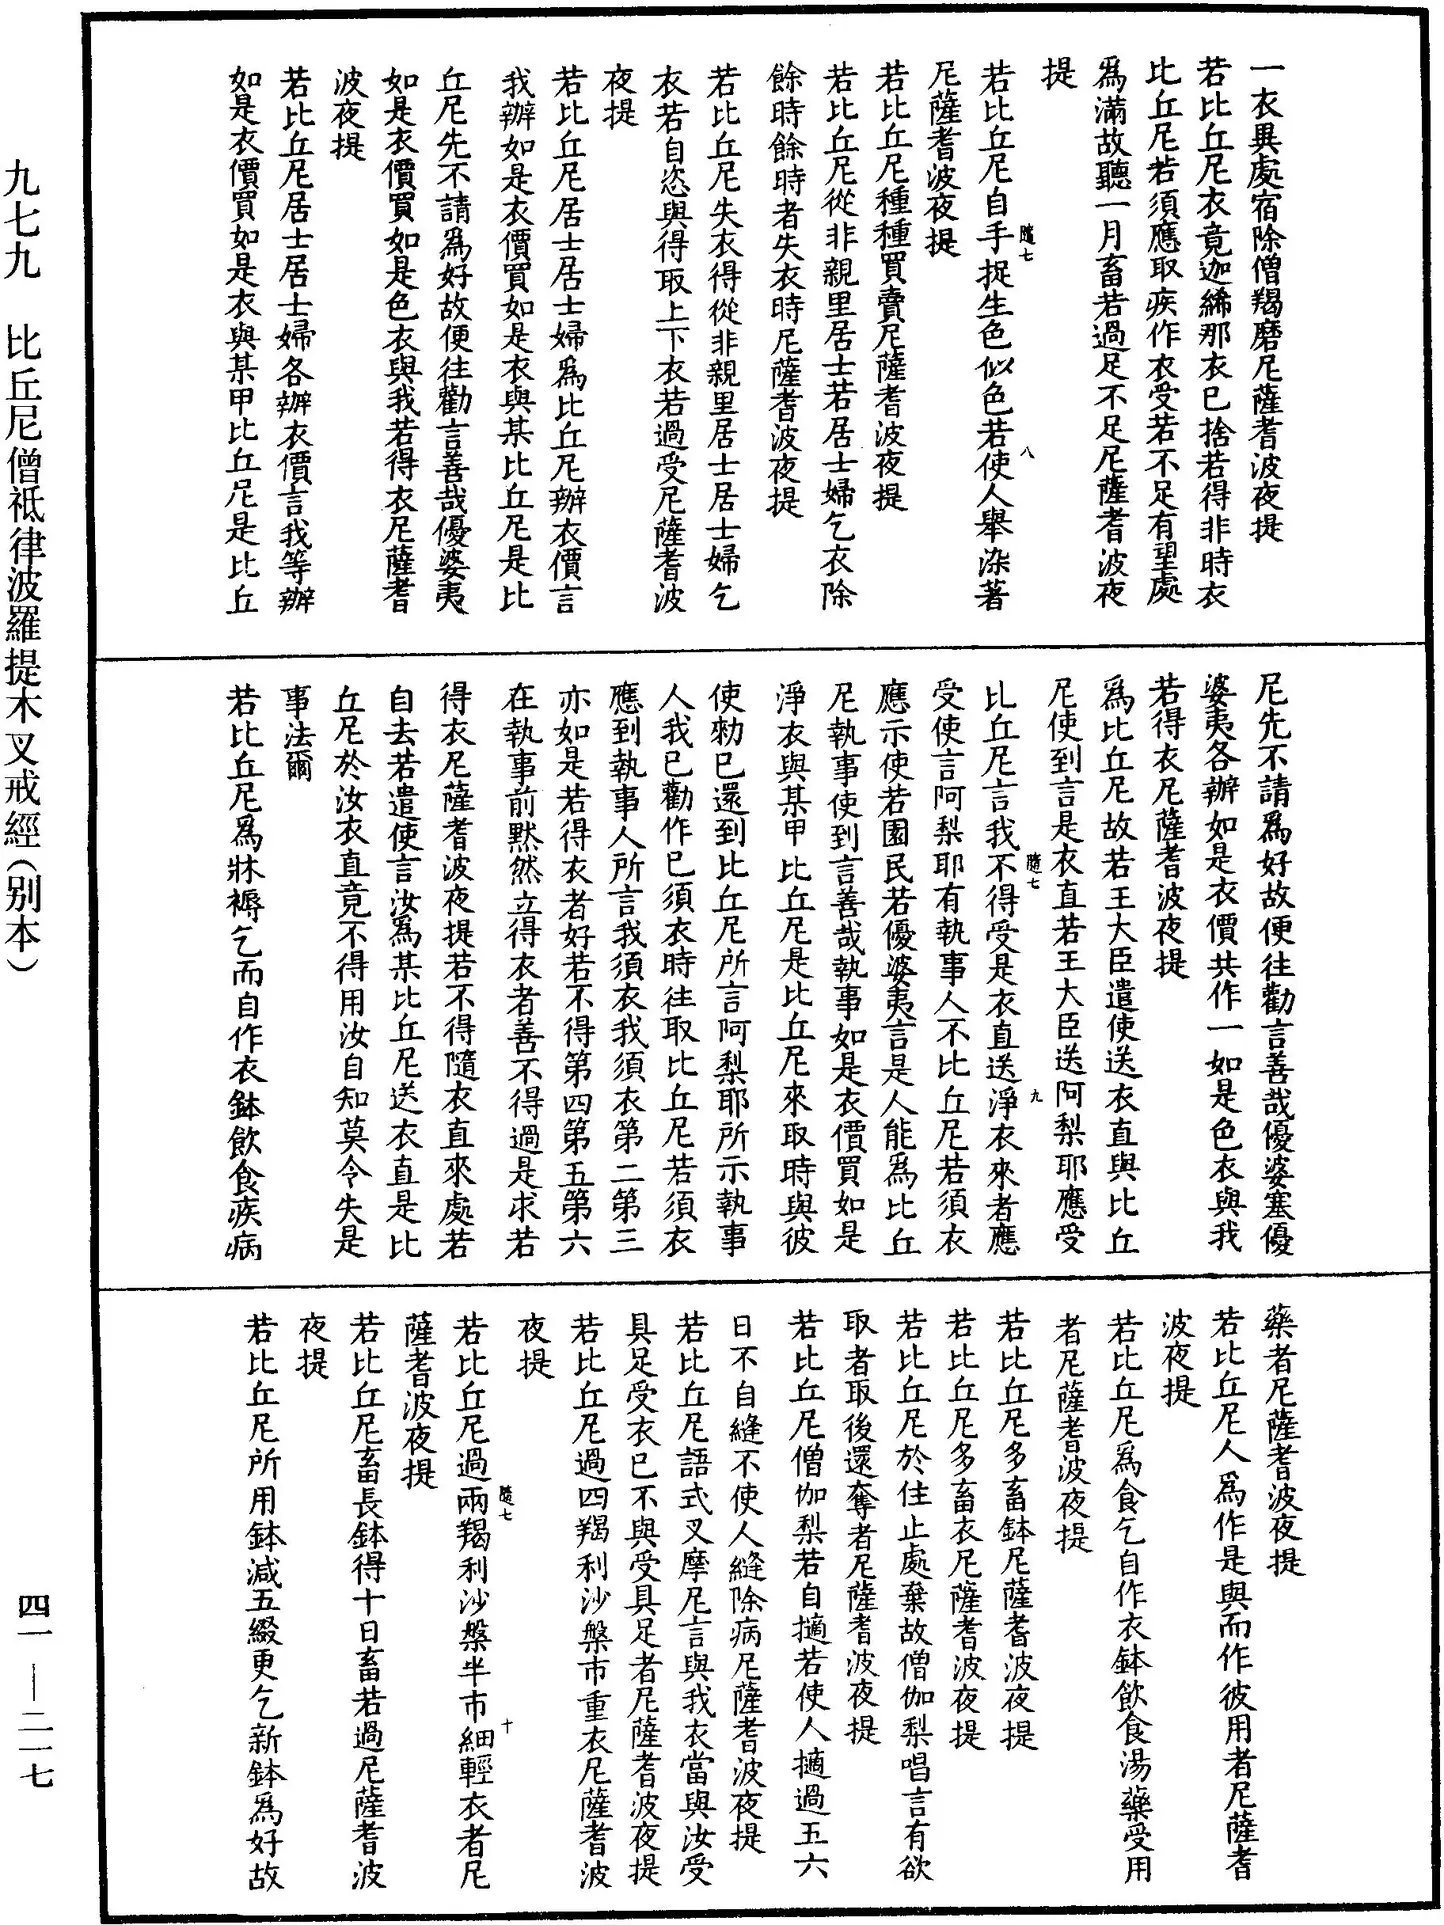 一衣異處宿除僧羯磨尼薩耆波夜提
若比丘尼衣竟迦絺那衣已捨若得非時衣
比丘尼若須應取疾作衣受若不足有望處
爲滿故聽一月畜若過足不足尼薩耆波夜
提
若比丘尼自手捉生色似色若使人舉染著
尼薩耆波夜提
若比丘尼種種買賣尼薩耆波夜提
若比丘尼從非親里居士若居士婦乞衣除
餘時餘時者失衣時尼薩耆波夜提
若比丘尼失衣得從非親里居士居士婦乞
衣若自恣與得取上下衣若過受尼薩耆波
夜提
若比丘尼居士居士婦爲比丘尼辦衣價言
我辦如是衣價買如是衣與某比丘尼是比
丘尼先不請爲好故便往勸言善哉優婆夷
如是衣價買如是色衣與我若得衣尼薩耆
波夜提
若比丘尼居士居士婦各辦衣價言我等辦
如是衣價買如是衣與某甲比丘尼是比丘
隨七
八
尼先不請爲好故便往勸言善哉優婆塞優
婆夷各辦如是衣價共作一如是色衣與我
若得衣尼薩耆波夜提
爲比丘尼故若王大臣遣使送衣直與比丘
尼使到言是衣直若王大臣送阿梨耶應受
比丘尼言我不得受是衣直送淨衣來者應
受使言阿梨耶有執事人不比丘尼若須衣
應示使若園民若優婆夷言是人能爲比丘
尼執事使到言善哉執事如是衣價買如是
淨衣與某甲比丘尼是比丘尼來取時與彼
使勑已還到比丘尼所言阿梨耶所示執事
人我已勸作已須衣時往取比丘尼若須衣
應到執事人所言我須衣我須衣第二第三
亦如是若得衣者好若不得第四第五第六
在執事前默然立得衣者善不得過是求若
得衣尼薩耆波夜提若不得隨衣直來處若
自去若遣使言汝爲某比丘尼送衣直是比
丘尼於汝衣直竟不得用汝自知莫令失是
事法爾
若比丘尼爲牀褥乞而自作衣鉢飲食疾病
隨七
九
藥者尼薩耆波夜提
若比丘尼人爲作是與而作彼用者尼薩耆
波夜提
若比丘尼爲食乞自作衣鉢飲食湯藥受用
者尼薩耆波夜提
若比丘尼多畜鉢尼薩耆波夜提
若比丘尼多畜衣尼薩耆波夜提
若比丘尼於住止處棄故僧伽梨唱言有欲
取者取後還奪者尼薩耆波夜提
若比丘尼僧伽梨若自擿若使人擿過五六
日不自縫不使人縫除病尼薩耆波夜提
若比丘尼語式叉摩尼言與我衣當與汝受
具足受衣已不與受具足者尼薩耆波夜提
若比丘尼過四羯利沙槃市重衣尼薩耆波
夜提
若比丘尼過兩羯利沙槃半市細輕衣者尼
薩耆波夜提
若比丘尼畜長鉢得十日畜若過尼薩耆波
夜提
若比丘尼所用鉢減五綴更乞新鉢爲好故
隨七
十
九七九 比丘尼僧祗律波羅提木叉戒經(别本)
四一—二一七